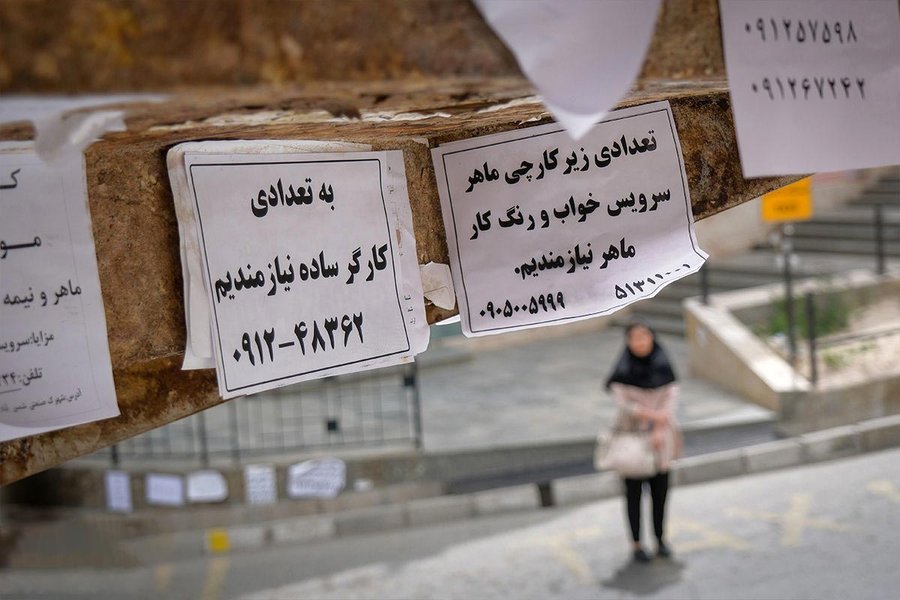 ماهر و نیمه
مزایا:سرویس
تلفن:
به تعدادی
کارگر ساده نیازمندیم
۰۹۱۲-۴۸۳۶۲
تعدادی زیر کارچی ماهر
سرویس خواب و رنگ کار
ماهر نیازمندیم.
۵۱۳۱۱۰۰۰ ۰۹۰۵۰۰۵۹۹۹
۰۹۱۲۵۷۵۹۸
۰۹۱۲۶۷۲۴۲